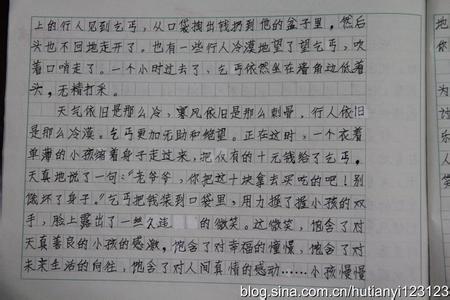 上的行人见到乞丐，从口袋拽出钱扔到他的盆子里，然后
头也不回地走开了。也有一些行人冷漠地望了望乞丐，吹
着口哨走了。一个小时过去了，乞丐依然坐在墙角边低着
头，无精打采。
天气依旧是那么冷，寒风依旧是那么刺骨，行人依旧
是那么冷漠。乞丐更加无助和绝望。正在这时，一个衣着
单薄的小孩缩着身子走过来，把仅有的十元钱给了乞丐。
天真地说了一句：“老爷爷，你把这十块拿去买吃的吧！别
做坏了身子。”乞丐把钱装到口袋里，用力握了握小孩的双
手，脸上露出了一丝久违的微笑。这微笑，饱含了对
天真善良的小孩的感激，饱含了对幸福的憧憬，饱含了对
未来生活的向往，饱含了对人间真情的感动……小孩慢慢
地
你
为
讨
乐
人
我
blog.sina.com.cn/hutianyi123123